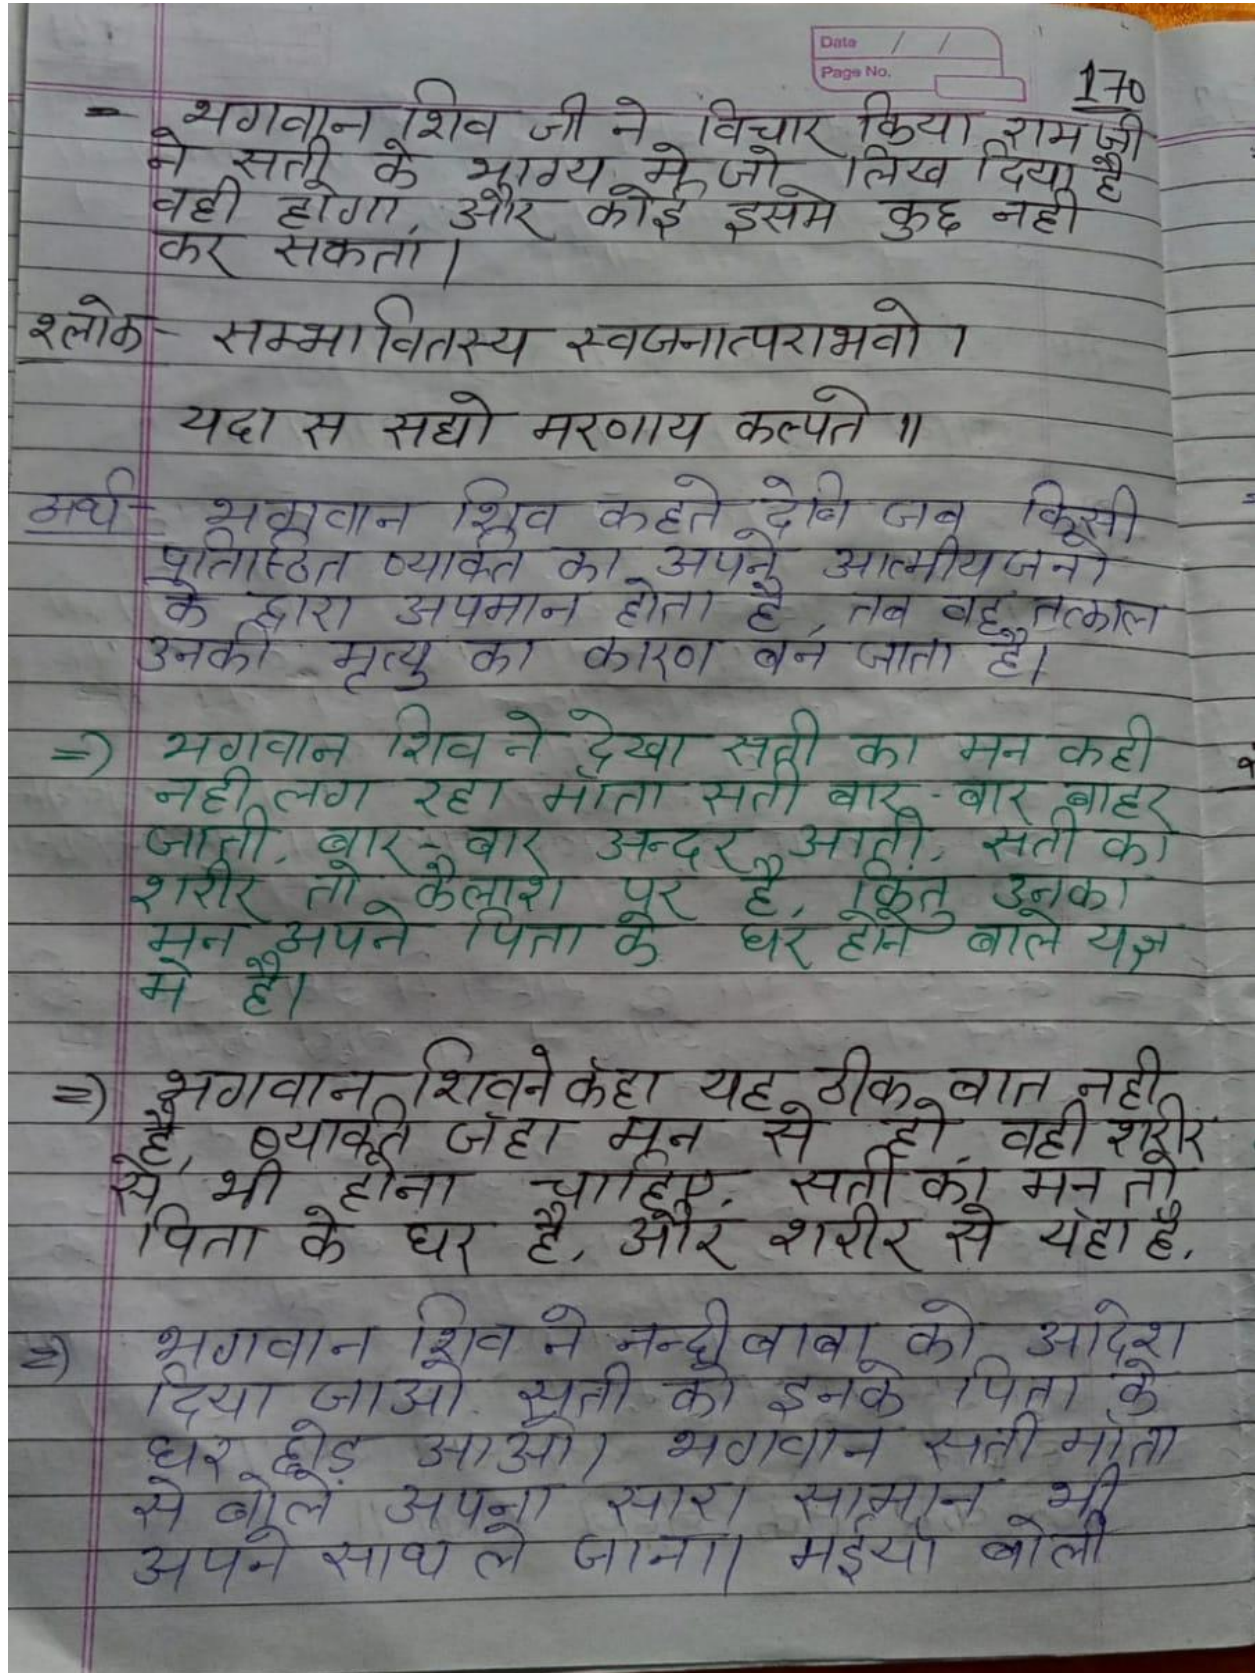 Date / /
Page No.
170
- भगवान शिव जी ने विचार किया रामजी
ने सती के भाग्य मे जो लिख दिया है
वही होगा, और कोई इसमे कुछ नही
कर सकता।
श्लोक - सम्भावितस्य स्वजनात्पराभवो ।
यदा स सद्यो मरणाय कल्पते ॥
अर्थ - भगवान शिव कहते देवि जब किसी
प्रतिष्ठित व्यक्ति का अपने आत्मीयजनो
के द्वारा अपमान होता है, तब वह तत्काल
उनकी मृत्यु का कारण बन जाता है।
=) भगवान शिव ने देखा सती का मन कही
नही लग रहा माँता सती बार-बार बाहर
जाती, बार-बार अन्दर आती, सती का
शरीर तो कैलाश पर है, किंतु उनका
मन अपने पिता के घर होने बाले यज्ञ
मे है।
=) भगवान शिवने कँहा यह ठीक बात नही
है, व्यक्ति जँहा मन से हो, वही शरीर
से भी होना चाहिए, सती का मन तो
पिता के घर है, और शरीर से यँहा है,
=) भगवान शिव ने नन्दी बाबा को आदेश
दिया जाओ सती को इनके पिता के
घर छोड़ आओ। भगवान सती माँता
से बोले अपना सारा सामान भी
अपने साथ ले जाना। मईया बोली